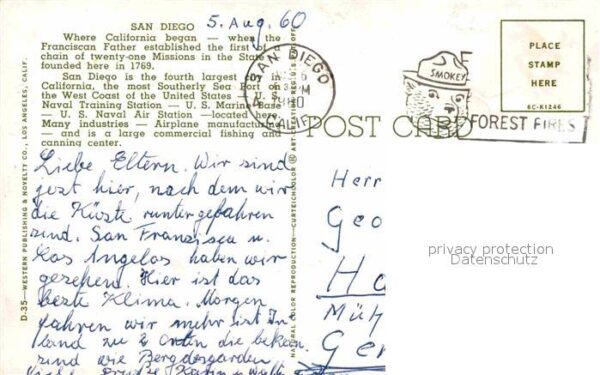 SAN DIEGO
5. Aug. 60
Where California began — when the
Franciscan Father established the first of a
chain of twenty-one Missions in the State
founded here in 1769.
San Diego is the fourth largest in
California, the most Southerly Sea Port on
the West Coast of the United States — U. S.
Naval Training Station — U. S. Marine Base
— U. S. Naval Air Station — located here.
Many industries — Airplane manufacturing
— and is a large commercial fishing and
canning center.
SAN DIEGO
PM
CALIF.
SMOKEY
FOREST FIRES
PLACE
STAMP
HERE
6C-K1246
POST CARD
Liebe Eltern. Wir sind
jezt hier, nach dem wir
die Küste runtergefahren
sind. San Franzisco u.
Los Angelos haben wir
gesehen. Hier ist das
beste Klima. Morgen
fahren wir mehr ist In
land zu
sind wie Bergdesgarden
Herr
Geo
Ha
Müh
Ger
privacy protection
Datenschutz
D-35—WESTERN PUBLISHING & NOVELTY CO., LOS ANGELES, CALIF.
NATURAL COLOR REPRODUCTION—CURTEICHCOLOR ® ART